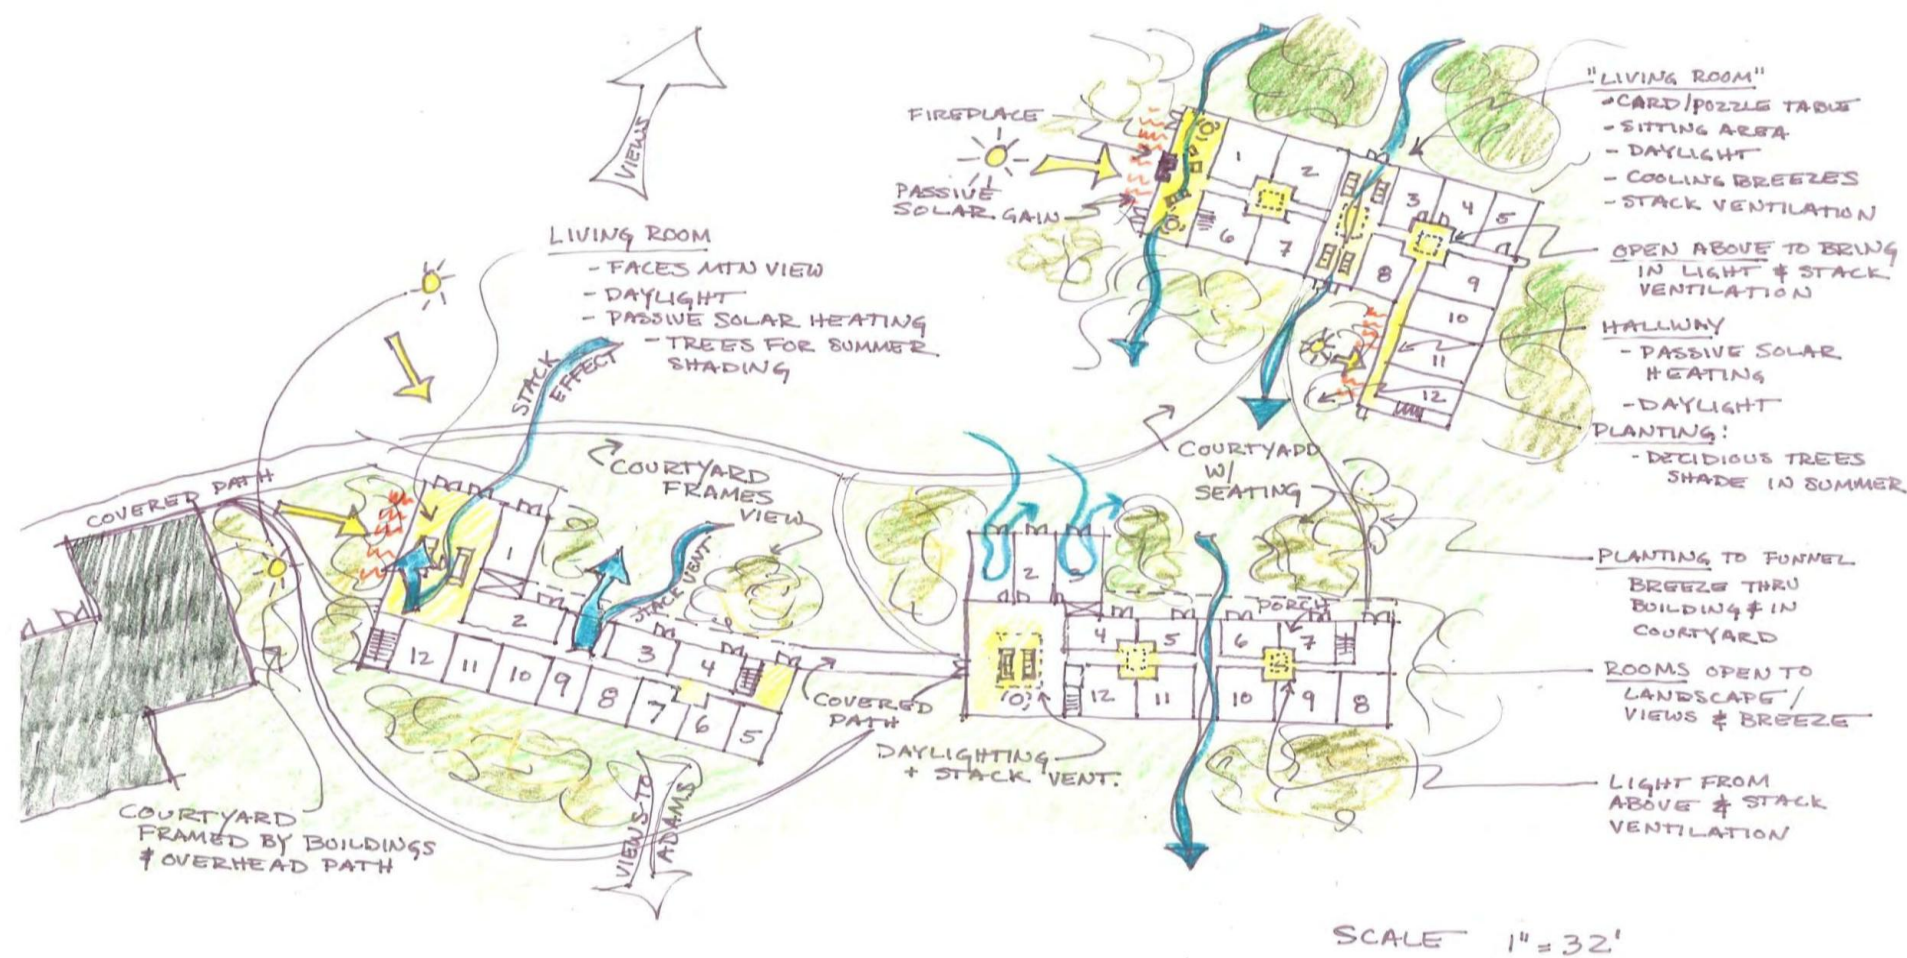 VIEWS
FIREPLACE
PASSIVE
SOLAR GAIN
"LIVING ROOM"
- CARD/PUZZLE TABLE
- SITTING AREA
- DAYLIGHT
- COOLING BREEZES
- STACK VENTILATION
OPEN ABOVE TO BRING
IN LIGHT & STACK
VENTILATION
HALLWAY
- PASSIVE SOLAR
HEATING
- DAYLIGHT
PLANTING:
- DECIDIOUS TREES
SHADE IN SUMMER
1
2
3
4
5
6
7
8
9
10
11
12
LIVING ROOM
- FACES MTN VIEW
- DAYLIGHT
- PASSIVE SOLAR HEATING
- TREES FOR SUMMER
SHADING
STACK
EFFECT
COVERED PATH
COURTYARD
FRAMES
VIEW
COURTYARD
W/
SEATING
STACK VENT.
1
2
3
4
12
11
10
9
8
7
6
5
COVERED
PATH
2
3
PORCH
4
5
6
7
12
11
10
9
8
DAYLIGHTING
+ STACK VENT.
PLANTING TO FUNNEL
BREEZE THRU
BUILDING & IN
COURTYARD
ROOMS OPEN TO
LANDSCAPE/
VIEWS & BREEZE
LIGHT FROM
ABOVE & STACK
VENTILATION
COURTYARD
FRAMED BY BUILDINGS
& OVERHEAD PATH
VIEWS TO
ADAMS
SCALE 1" = 32'